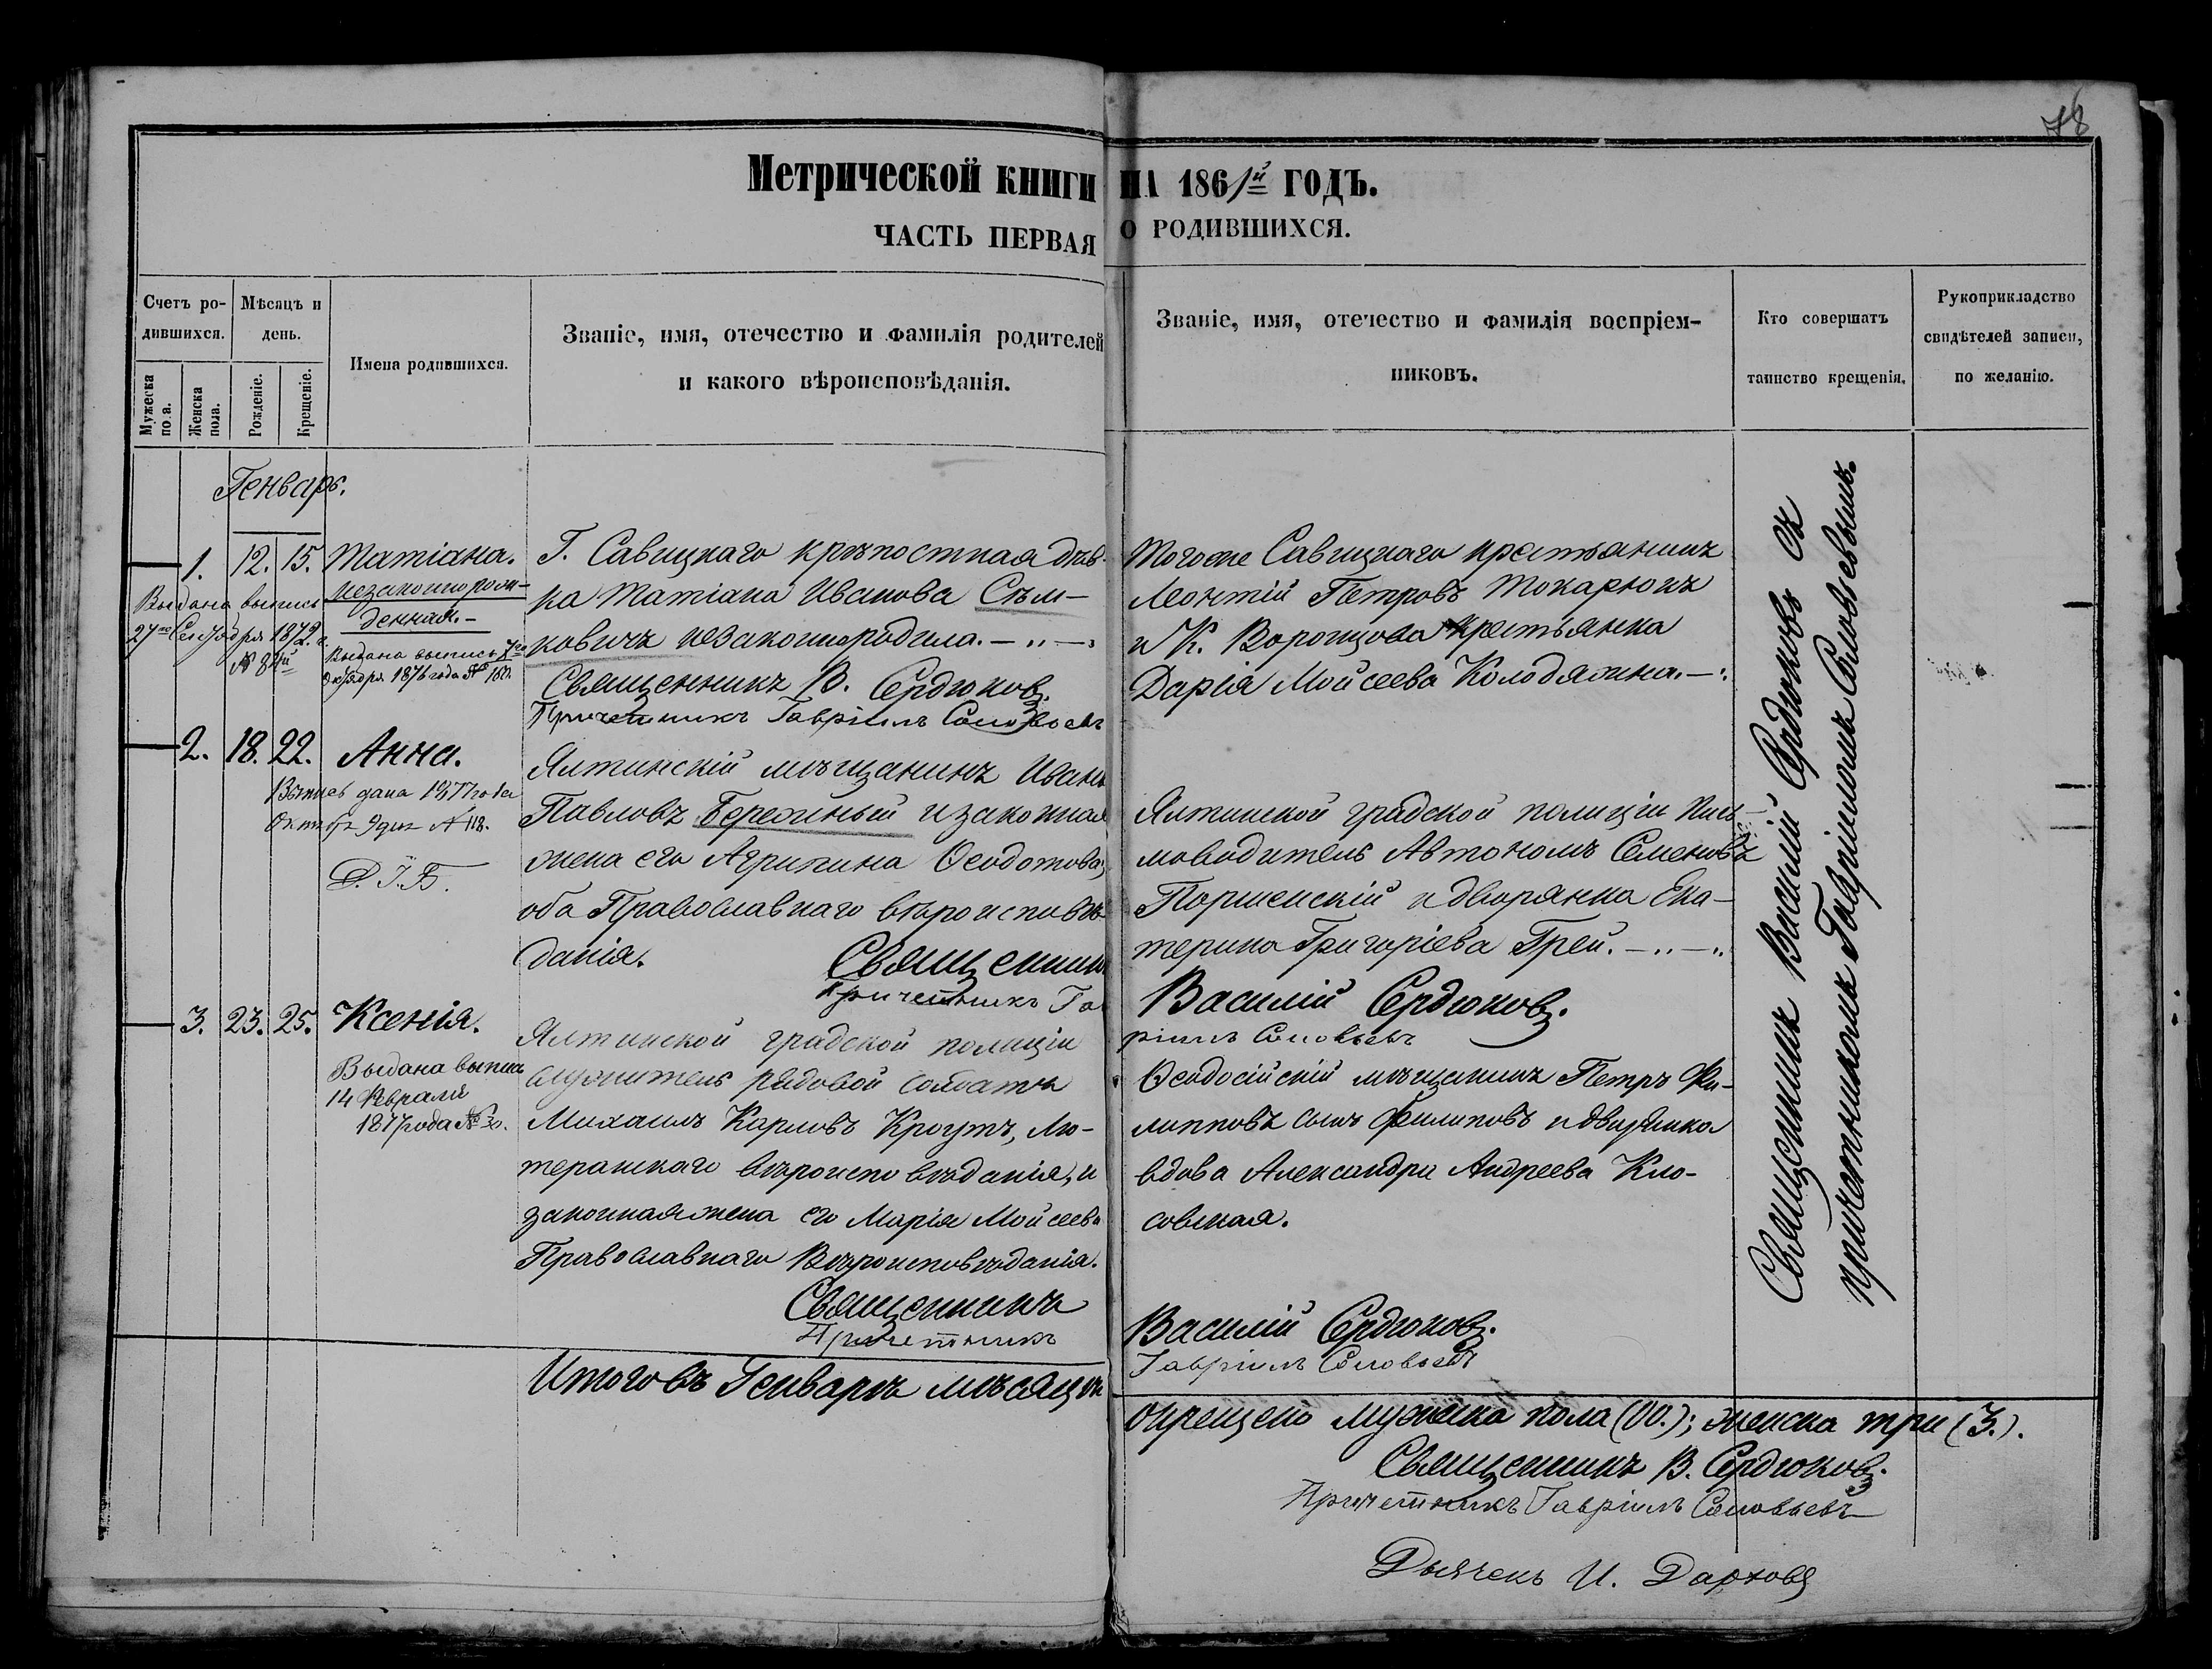 78
Метрической книги на 1861й годъ.
ЧАСТЬ ПЕРВАЯ О РОДИВШИХСЯ.
Счетъ ро-
дившихся.
Мужеска
пола.
Женска
пола.
Мѣсяцъ и
день.
Рожденіе.
Крещеніе.
Имена родившихся.
Званіе, имя, отечество и фамилія родителей
и какого вѣроисповѣданія.
Званіе, имя, отечество и фамилія воспріем-
никовъ.
Кто совершатъ
таинство крещенія.
Рукоприкладство
свидѣтелей записи,
по желанію.
Генварь.
1. 12. 15. Татіана.
незаконнорож-
денная.-
Выдана выпись
27го Сентября 1872 г.
Выдана выпись 7го
Октября 1876 года №
Г. Савицкаго крѣпостная дѣв-
ка Татіана Иванова Сѣм-
ковичъ незаконнородила.-„-
Священникъ В. Сердюковъ.
Причетникъ Гавріилъ Соловьевъ
Тогоже Савицкаго крестьянинъ
Леонтій Петровъ Токарюкъ
и К. Воронцова крестьянка
Дарія Мойсеева Колодяжна.-
2. 18. 22. Анна.
Выпись дана 1877 года
Октябр 9 дня № 118.
Ялтинскій мѣщанинъ Иванъ
Павловъ Бережный и законная
жена его Агрипина Ѳеодотова,
оба Православнаго вѣроисповѣ-
данія.
Ялтинской градской полиціи Пись-
моводитель Автономъ Семеновъ
и дворянка Ека-
терина Григоріева Грей.-„-
Священникъ Василій Сердюковъ.
Причетникъ Гавріилъ Соловьевъ
3. 23. 25. Ксенія.
Выдана выпись
14 Февраля
1877 года № 30.
Ялтинской градской полиціи
служитель рядовой солдатъ
Михаилъ Карловъ Крогутъ, Лю-
теранскаго вѣроисповѣданія, и
законная жена его Марія Мойсеева
Православнаго Вѣроисповѣданія.
Ѳеодосійскій мѣщанинъ Петръ Фи-
липповъ сынъ Филиповъ и дворянка
вдова Александра Андреева Кло-
совская.
Священникъ Василій Сердюковъ.
Причетникъ Гавріилъ Соловьевъ
Священникъ Василій Сердюковъ съ
причетникомъ Гавріиломъ Соловьевымъ.
Итого въ Генварѣ мѣсяцѣ окрещено мужеска пола (00.); женска три (3.).
Священникъ В. Сердюковъ.
Причетникъ Гавріилъ Соловьевъ
Дьячекъ И.